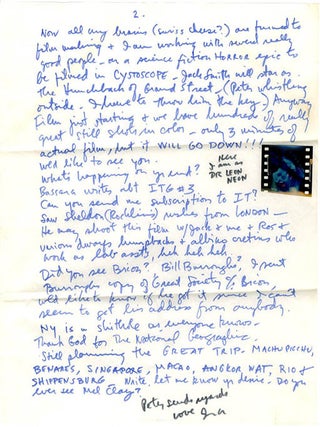 2.
Now all my brains (swiss cheese?) are turned to
film making & I am working with several really
good people – on a science fiction HORROR epic to
be filmed in CYSTOSCOPE – Jack Smith will star as
the Hunchback of Grand Street – (Peter whistling
outside. I have to throw him the key.) Anyway
Film just starting & we have hundreds of really
great still shots in color – only 3 minutes of
actual film, but it WILL GO DOWN!!!
wd like to see you.
Whats happening on yr end?
Here
I am as
DR LEON
NEON
writes abt IT & #3
Can you send me subscription to IT?
Saw Sheldon (Rochlin) rushes from LONDON –
He may shoot this film w/ Jack & me + Ros &
various dwarfs humpbacks & albino cretins who
work as lab assts, heh heh heh.
Did you see Brion? Bill Burroughs? I sent
Burroughs copy of Great Society % Brion,
wd like to know if he got it since I can't
seem to get his address from anybody.
NY is a shithole as everyone knows.
Thank God for The National Geographic.
Still planning the GREAT TRIP – MACHU PICCHU,
BENARES, SINGAPORE, MACAO, ANGKOR WAT, RIO &
SHIPPENSBURG – Write, let me know yr desire. Do you
ever see Mel Clay?
Peter sends regards
love Ira